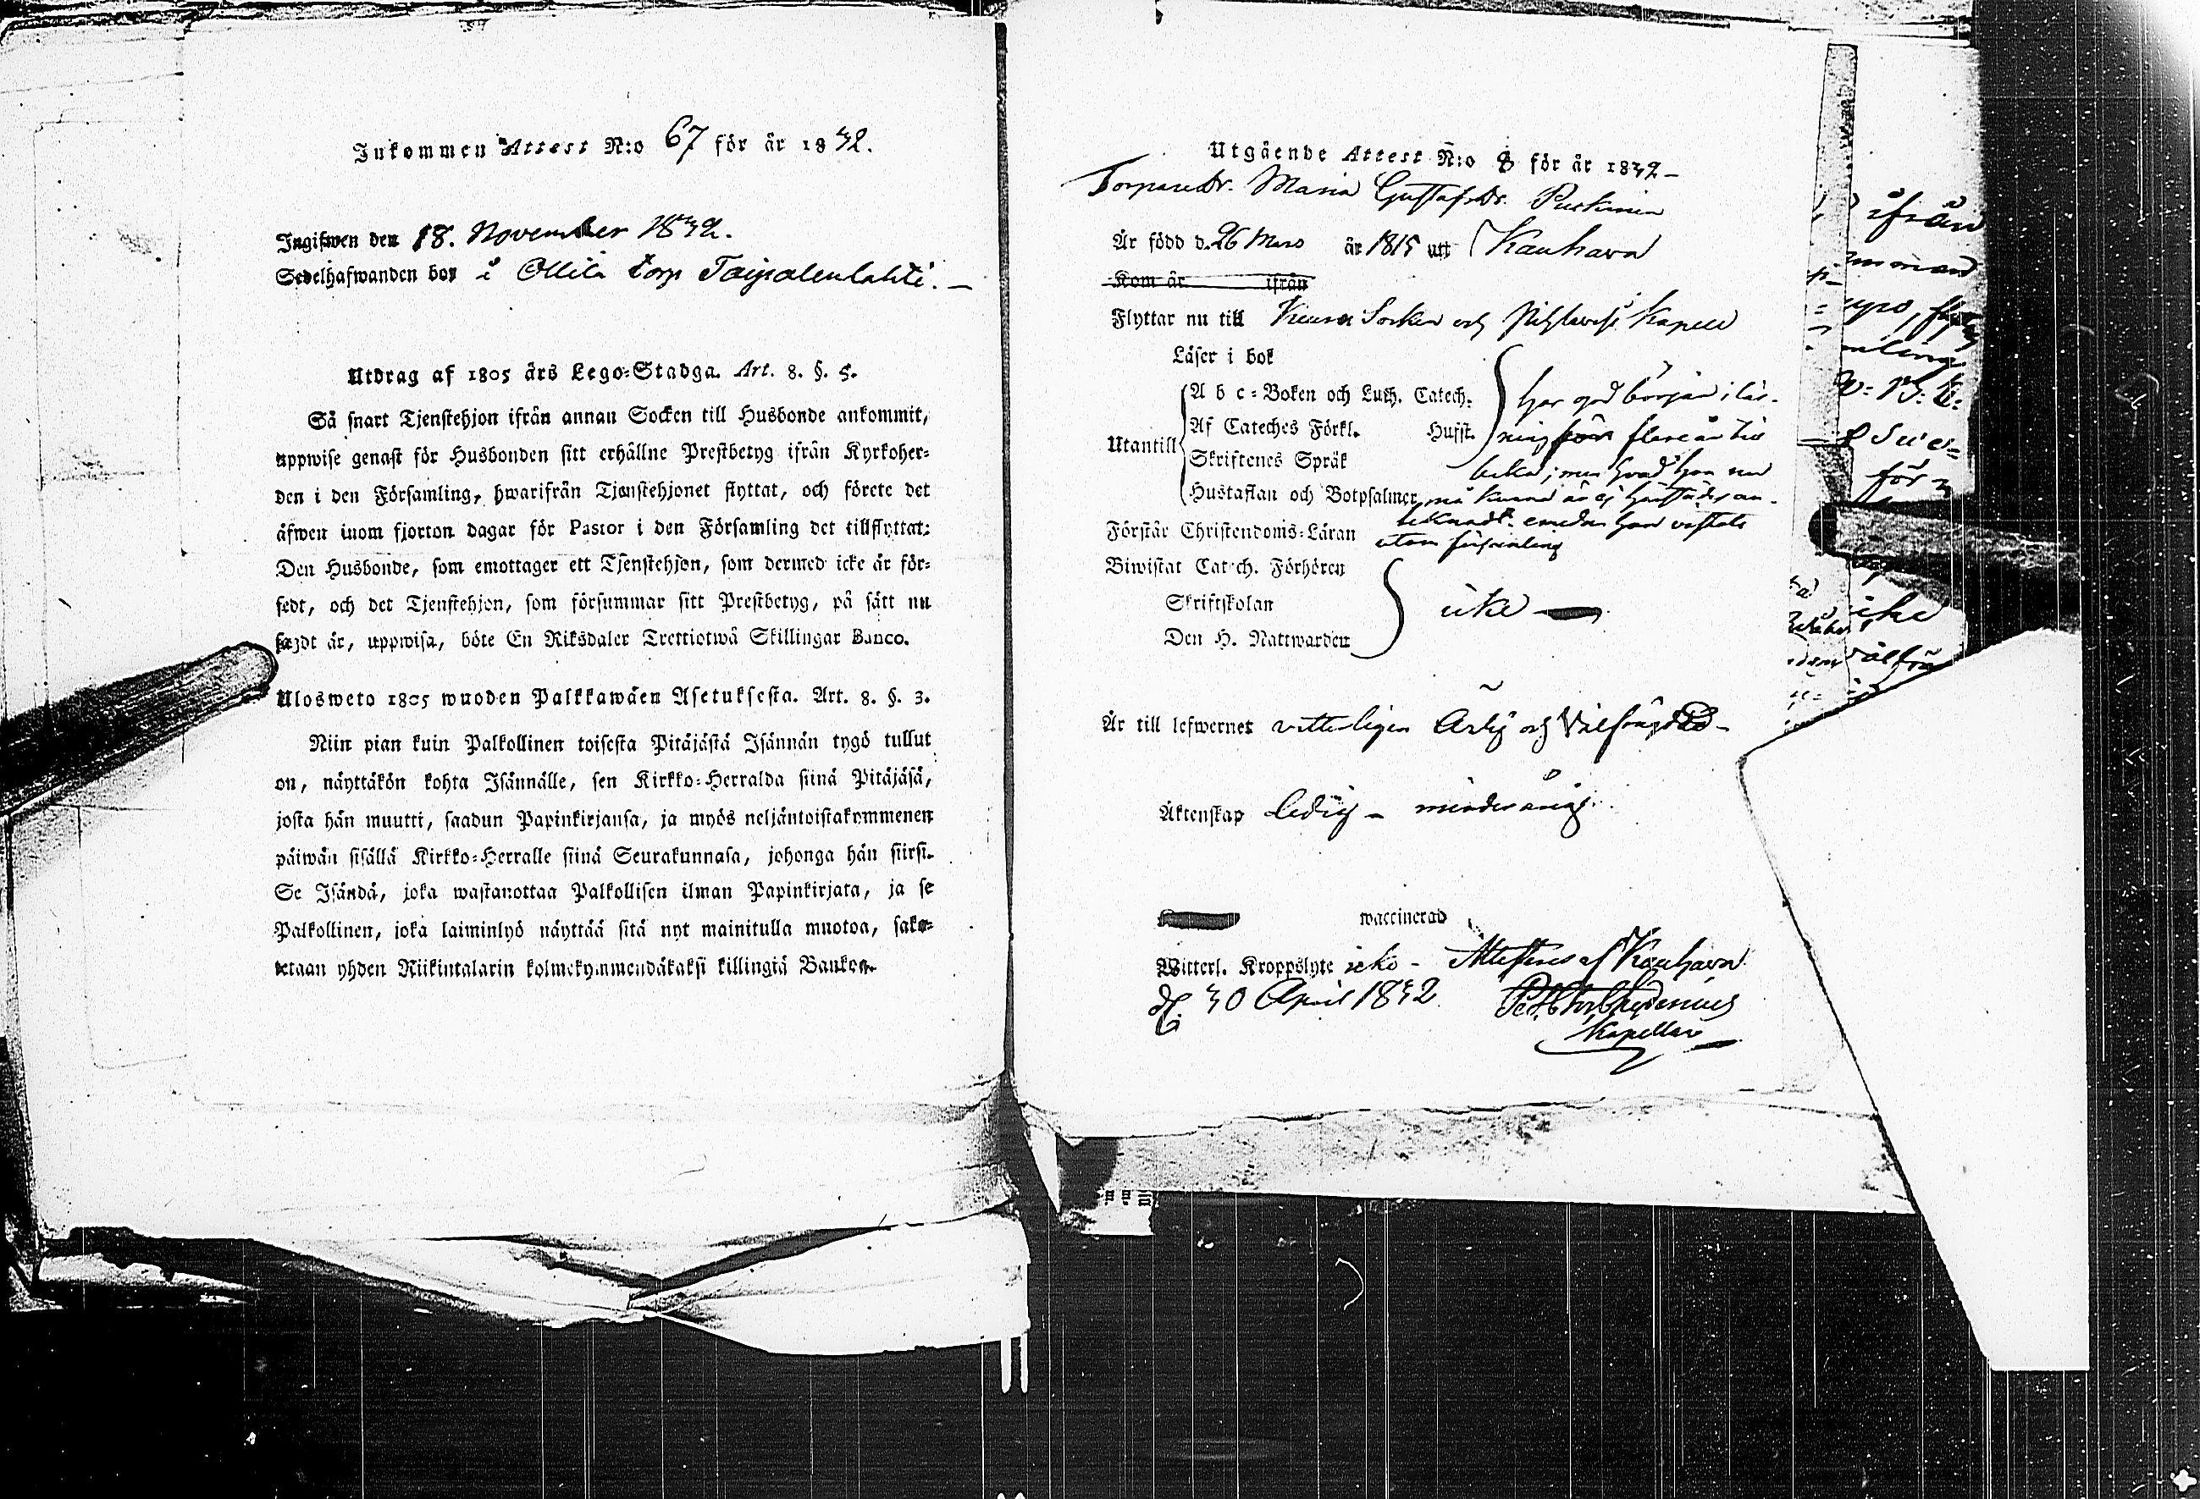 Inkommen Attest N:o 67 för år 1832.
Ingifwen den 18. November 1832.
Sedelhafwanden bor i Ollila torp Taipalenlahti.
Utdrag af 1805 års Lego-Stadga. Art. 8. §. 5.
Så snart Tjenstehjon ifrån annan Socken till Husbonde ankommit,
uppwise genast för Husbonden sitt erhållne Prestbetyg ifrån Kyrkoher-
den i den Församling, hwarifrån Tjenstehjonet flyttat, och förete det
äfwen inom fjorton dagar för Pastor i den Församling det tillflyttat;
Den Husbonde, som emottager ett Tjenstehjon, som dermed icke är för-
sedt, och det Tjenstehjon, som försummar sitt Prestbetyg, på sätt nu
sagdt är, uppwisa, böte En Riksdaler Trettiotwå Skillingar Banco.
Ulosweto 1805 wuoden Palkkawäen Asetuksesta. Art. 8. §. 3.
Niin pian kuin Palkollinen toisesta Pitäjästä Isännän tygö tullut
on, näyttäkön kohta Isännälle, sen Kirkko-Herralda siinä Pitäjäsä,
josta hän muutti, saadun Papinkirjansa, ja myös neljäntoistakymmenen
päiwän sisällä Kirkko-Herralle siinä Seurakunnasa, johonga hän siirsi.
Se Isändä, joka wastanottaa Palkollisen ilman Papinkirjata, ja se
Palkollinen, joka laiminlyö näyttää sitä nyt mainitulla muotoa, sako-
tetaan yhden Riikintalarin kolmekymmendäkaksi killingiä Bankoa.
Utgående Attest N:o 8 för år 1832
Torparedr. Maria Gustafsdr. Puskinen
Är född d. 26 Mars år 1815 utt Kauhava
Kom år ifrån
Flyttar nu till Keuru Socken och Pihlavesi Kapell
Läser i bok
A b c-Boken och Luth. Catech.
Af Cateches Förkl. Husst.
Utantill
Skriftenes Språk
Hustaflan och Botpsalmer
har gjord början i läs-
ning för flere år till
baka; men hvad hon nu
må kunna är ej härstädes an-
tecknadt. emedan hon vistats
utom församling
Förstår Christendoms-Läran
Biwistat Catech. Förhören
Skriftskolan
Den H. Nattwarden
icke
Är till lefwernet vitterligen ärlig och välfrägdad
Äktenskap ledig - minderårig
waccinerad
Witterl. Kroppslyte icke - Attesteras af Kauhava
d. 30 April 1832
Kapellan
ifrån
för
icke